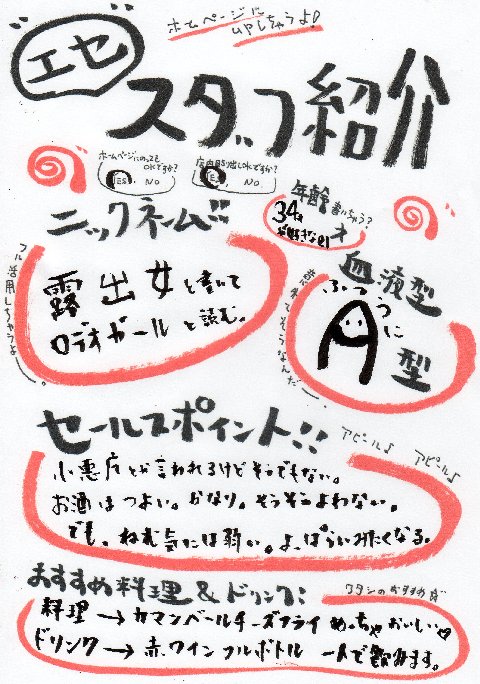 ホームページに
UPしちゃうよ!
エセ
スタッフ紹介
ホームページにのっても
OKですか?
YES. NO
店内貼り出しOKですか?
YES. NO
ニックネーム!!
年齢言いちゃう?
34才
フル活用しちゃうよ〜。
露出女と書いて
ロデオガールと読む。
血液型
ふつうに
A型
そうなんだ〜。
セールスポイント!!
アピール♪ アピール♪
小悪魔とか言われるけどそうでもない。
お酒はつよい。かなり。そうそうよわない。
でも、ねむ気には弱い。よっぱらいみたくなる。
おすすめ料理&ドリンク:
ワタシのおすすめ☆
料理→カマンベールチーズフライ めっちゃおいしい♡
ドリンク→赤ワインフルボトル 一人で飲めます。